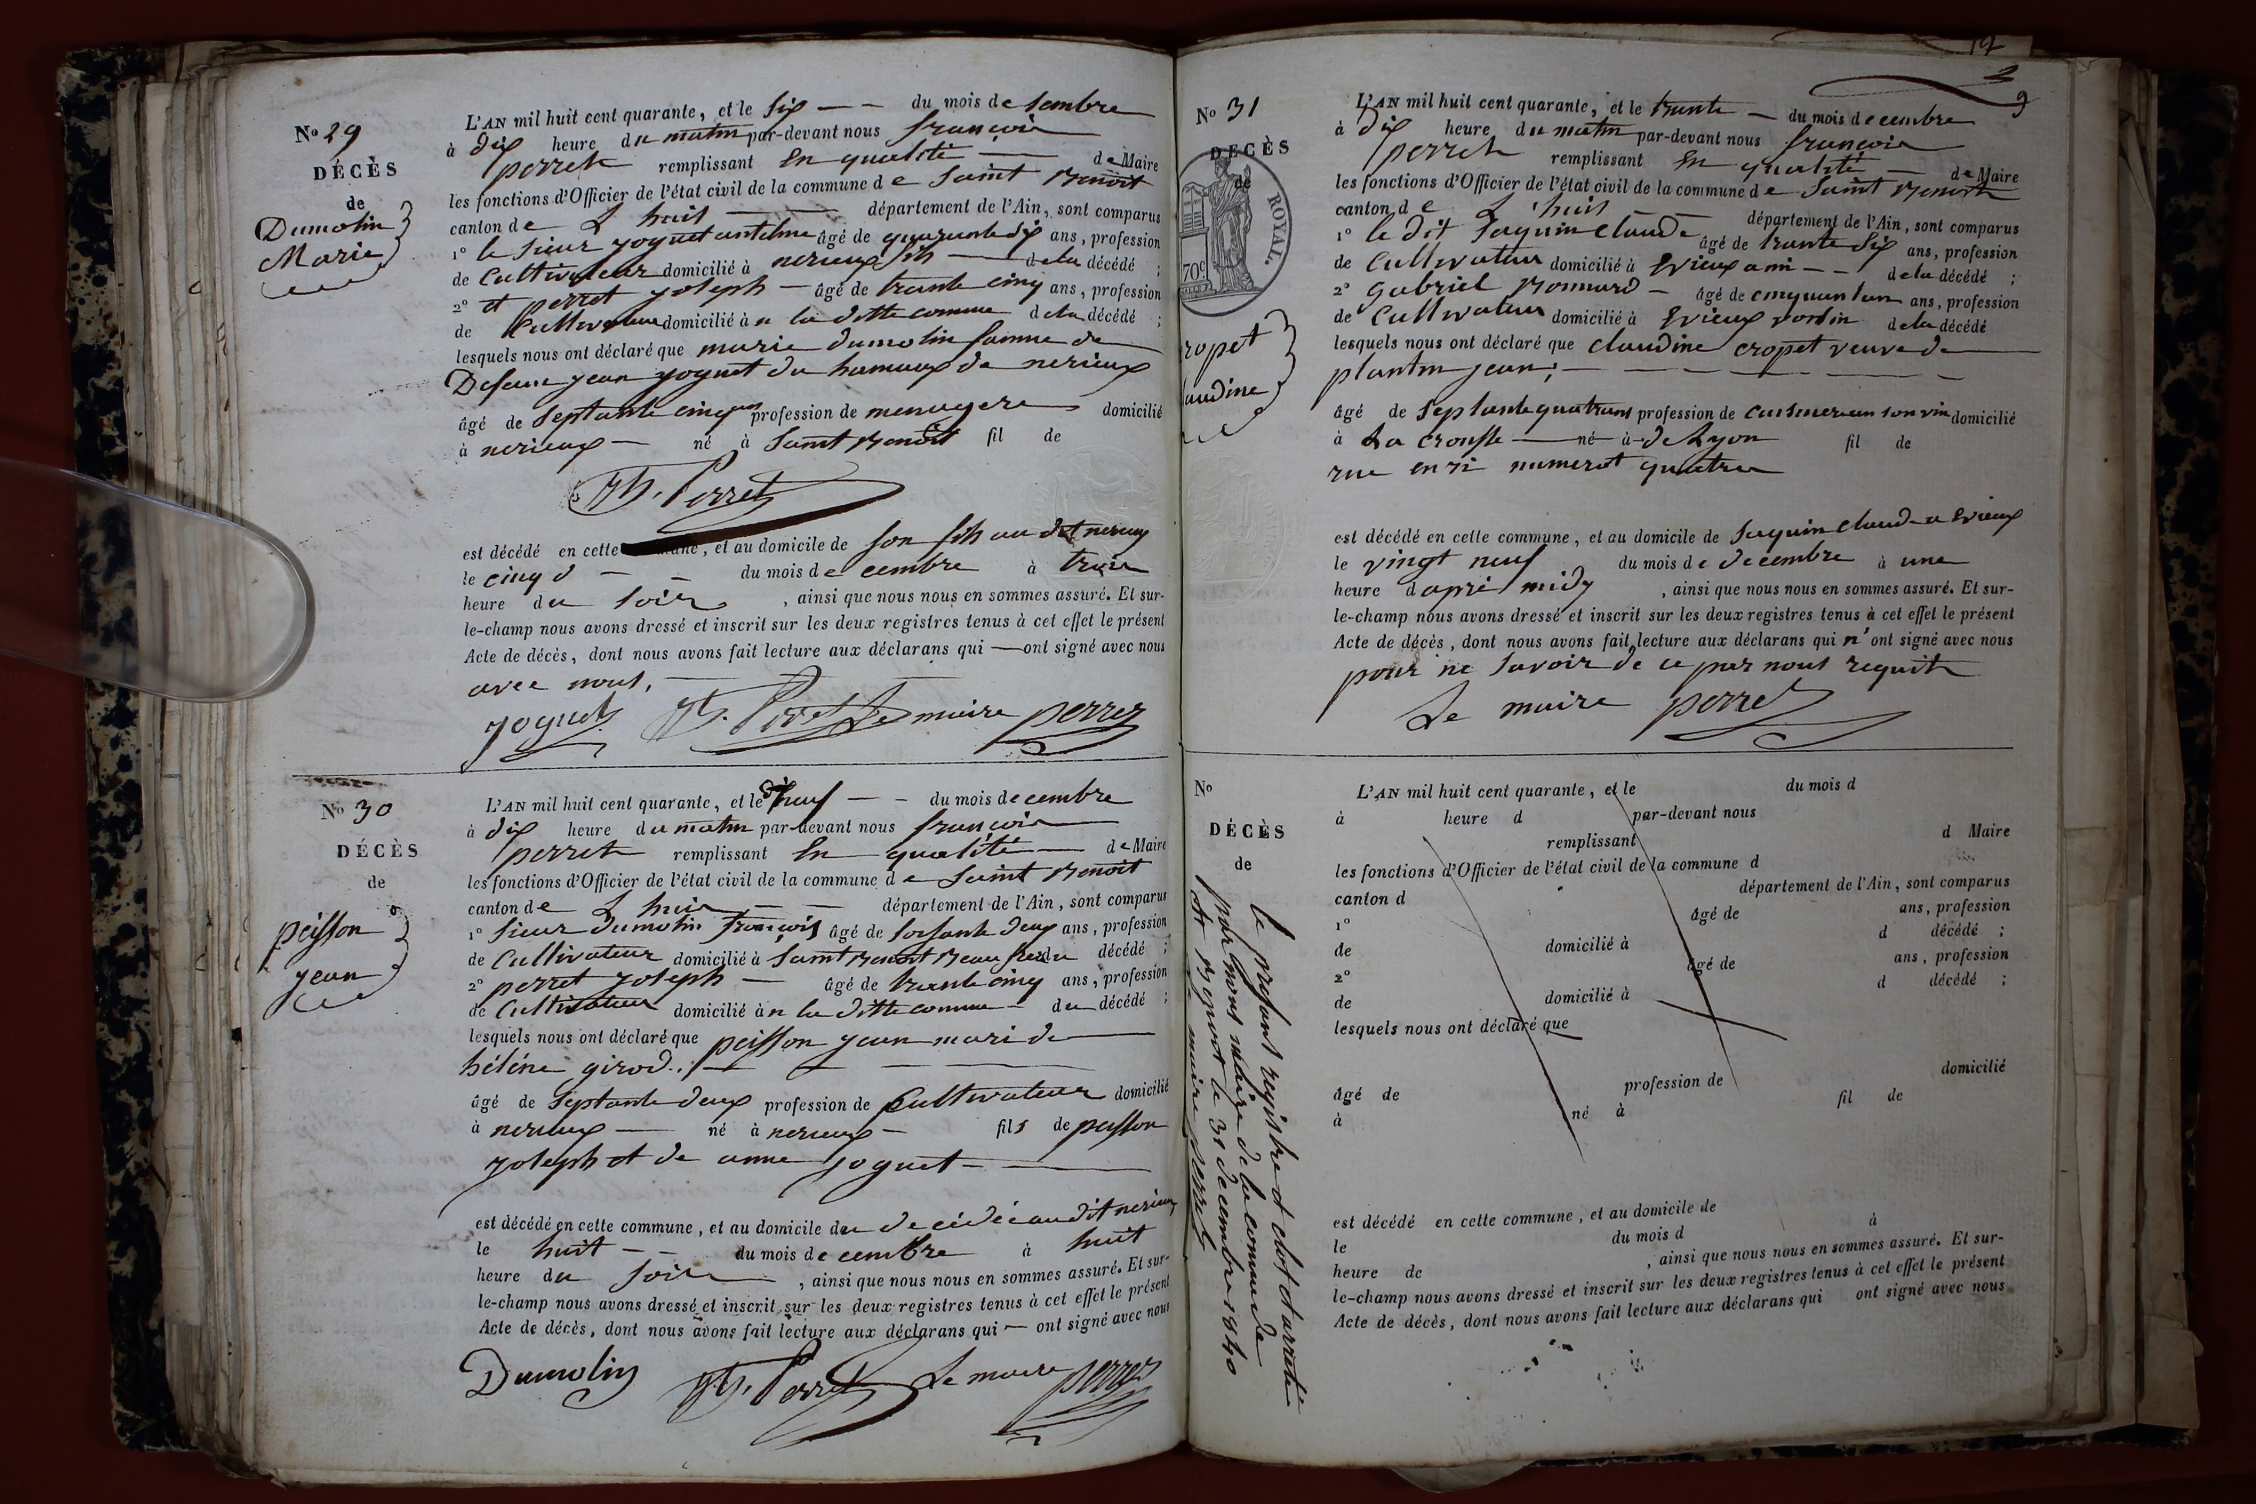 No 29
DÉCÈS
de
Dumolin
Marie
L'AN mil huit cent quarante, et le six du mois de cembre
à dix heure du matin par-devant nous françois
perret remplissant En qualité de Maire
les fonctions d'Officier de l'état civil de la commune de Saint Benoit
canton de L huis département de l'Ain, sont comparus
1º le sieur joguet antelme âgé de quarante six ans, profession
de Cultivateur domicilié à nerieux fils de la décédé ;
2º et perret joseph âgé de trante cinq ans, profession
de Cultivateur domicilié à n la ditte comune de la décédé ;
lesquels nous ont déclaré que marie dumolin famme de
Defunt jean joguet du hameaux de nerieux
âgé de septante cinq ans profession de menagere domicilié
à nerieux né à Saint Benoit fil de
Jh. Perret
est décédé en cette commune, et au domicile de son fils au dit nerieux
le cinq d du mois de cembre à troix
heure du soir, ainsi que nous nous en sommes assuré. Et sur-
le-champ nous avons dressé et inscrit sur les deux registres tenus à cet effet le présent
Acte de décès, dont nous avons fait lecture aux déclarans qui ont signé avec nous
avec nous.
joguet Jh. Perret Le maire perret
No 30
DÉCÈS
de
peisson
jean
L'AN mil huit cent quarante, et le dix neuf du mois de cembre
à dix heure du matin par-devant nous françois
perret remplissant En qualité de Maire
les fonctions d'Officier de l'état civil de la commune de Saint Benoit
canton de L huis département de l'Ain, sont comparus
1º sieur dumolin François âgé de soisante deux ans, profession
de Cultivateur domicilié à Saint Benoit décédé ;
2º perret joseph âgé de trante cinq ans, profession
de Cultivateur domicilié à n la ditte comune du décédé ;
lesquels nous ont déclaré que peisson jean mari de
héléne girod.
âgé de septante deux profession de Cultivateur domicilié
à nerieux né à nerieux fils de peisson
joseph et de anne joguet
est décédé en cette commune, et au domicile du decédé au dit nerieux
le huit du mois de cembre à huit
heure du soir, ainsi que nous nous en sommes assuré. Et sur-
le-champ nous avons dressé et inscrit sur les deux registres tenus à cet effet le présent
Acte de décès, dont nous avons fait lecture aux déclarans qui ont signé avec nous
Dumolin Jh. Perret Le maire perret
No 31
DÉCÈS
de
ROYAL.
70c
ropet
audine
L'AN mil huit cent quarante, et le trante du mois de cembre
à dix heure du matin par-devant nous françois
perret remplissant En qualité de Maire
les fonctions d'Officier de l'état civil de la commune de Saint Benoit
canton de L'huis département de l'Ain, sont comparus
1º le dit Jaquin claude âgé de trante six ans, profession
de Cultivateur domicilié à Evieux ami de la décédé ;
2º Gabriel Bonnard âgé de cinquante un ans, profession
de Cultivateur domicilié à Evieux voisin de la décédé
lesquels nous ont déclaré que claudine cropet veuve de
plantin jean ;
âgé de septante quatre ans profession de domicilié
à La crousse né à de Lyon fil de
rue enri numerot quatre
est décédé en cette commune, et au domicile de Jaquin claude a Evieux
le vingt neuf du mois de decembre à une
heure d'apré midy, ainsi que nous nous en sommes assuré. Et sur-
le-champ nous avons dressé et inscrit sur les deux registres tenus à cet effet le présent
Acte de décès, dont nous avons fait lecture aux déclarans qui n'ont signé avec nous
pour ne savoir de ce par nous requit
Le maire perret
No
DÉCÈS
de
le present registre et clot et arrete
par nous maire de la comune de
St Benoit le 31 decembre 1840
le maire perret
L'AN mil huit cent quarante, et le du mois d
à heure d par-devant nous
remplissant d Maire
les fonctions d'Officier de l'état civil de la commune d
canton d département de l'Ain, sont comparus
1º âgé de ans, profession
de domicilié à d décédé ;
2º âgé de ans, profession
de domicilié à d décédé ;
lesquels nous ont déclaré que
âgé de profession de domicilié
à né à fil de
est décédé en cette commune, et au domicile de
le du mois d à
heure de, ainsi que nous nous en sommes assuré. Et sur-
le-champ nous avons dressé et inscrit sur les deux registres tenus à cet effet le présent
Acte de décès, dont nous avons fait lecture aux déclarans qui ont signé avec nous